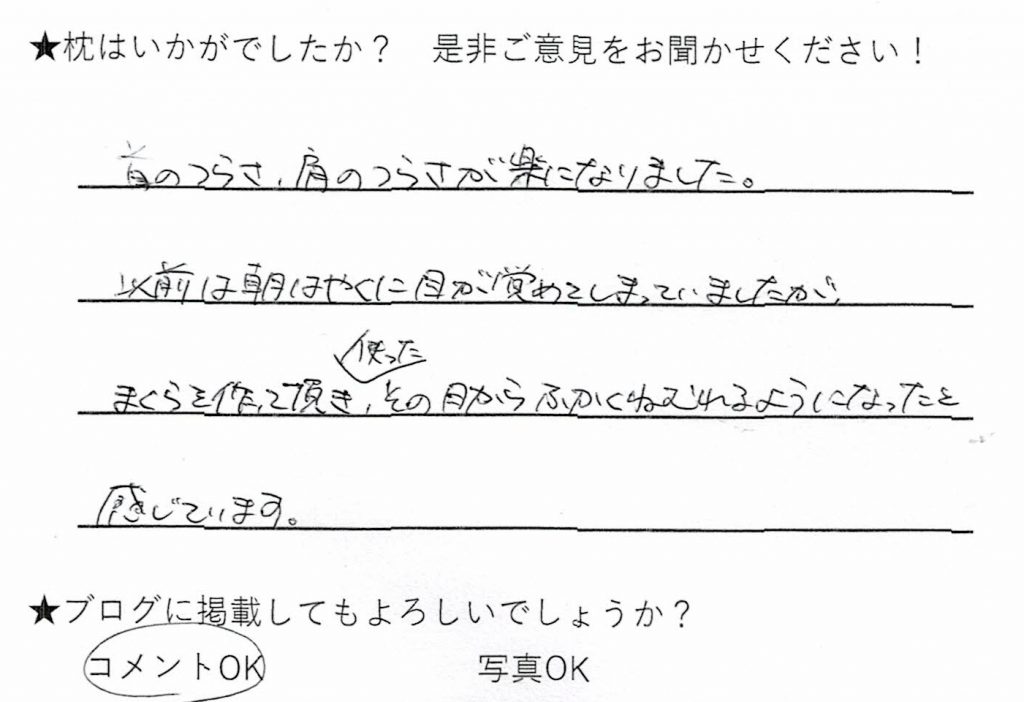 ★枕はいかがでしたか？　是非ご意見をお聞かせください！
首のつらさ、肩のつらさが楽になりました。
以前は朝はやくに目が覚めてしまっていましたが、
使った
まくらを作って頂き、その日からふかくねむれるようになったと
感じています。
★ブログに掲載してもよろしいでしょうか？
コメントOK　写真OK